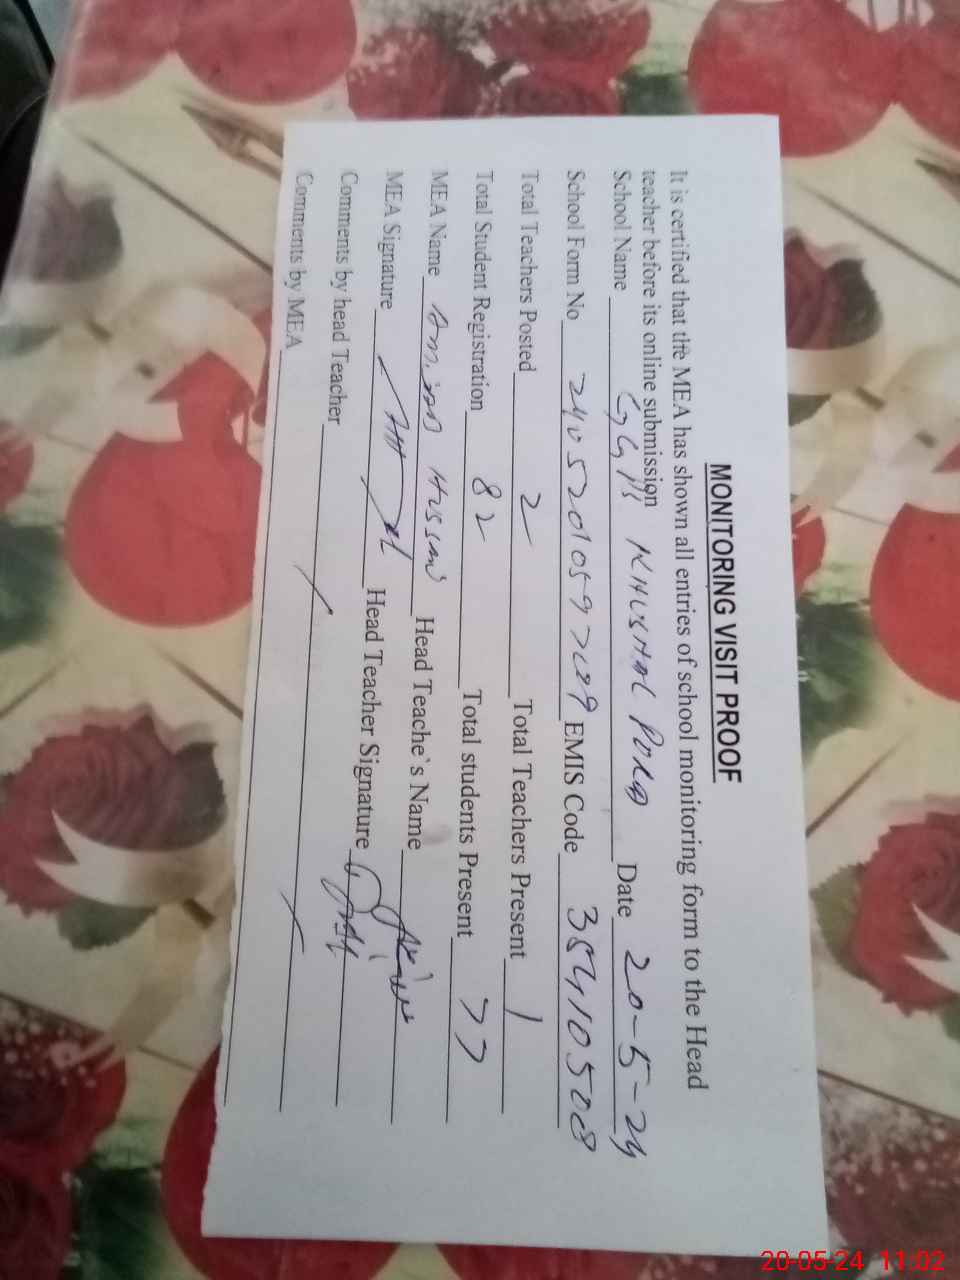 MONITORING VISIT PROOF
It is certified that the MEA has shown all entries of school monitoring form to the Head
teacher before its online submission
School Name GGPS KHUSHAL PORA Date 20-5-24
School Form No EMIS Code 38410508
Total Teachers Posted 2 Total Teachers Present 1
Total Student Registration 82 Total students Present 77
MEA Name Amjad Hussain Head Teache`s Name
MEA Signature Head Teacher Signature
Comments by head Teacher
Comments by MEA
20-05-24 11:02